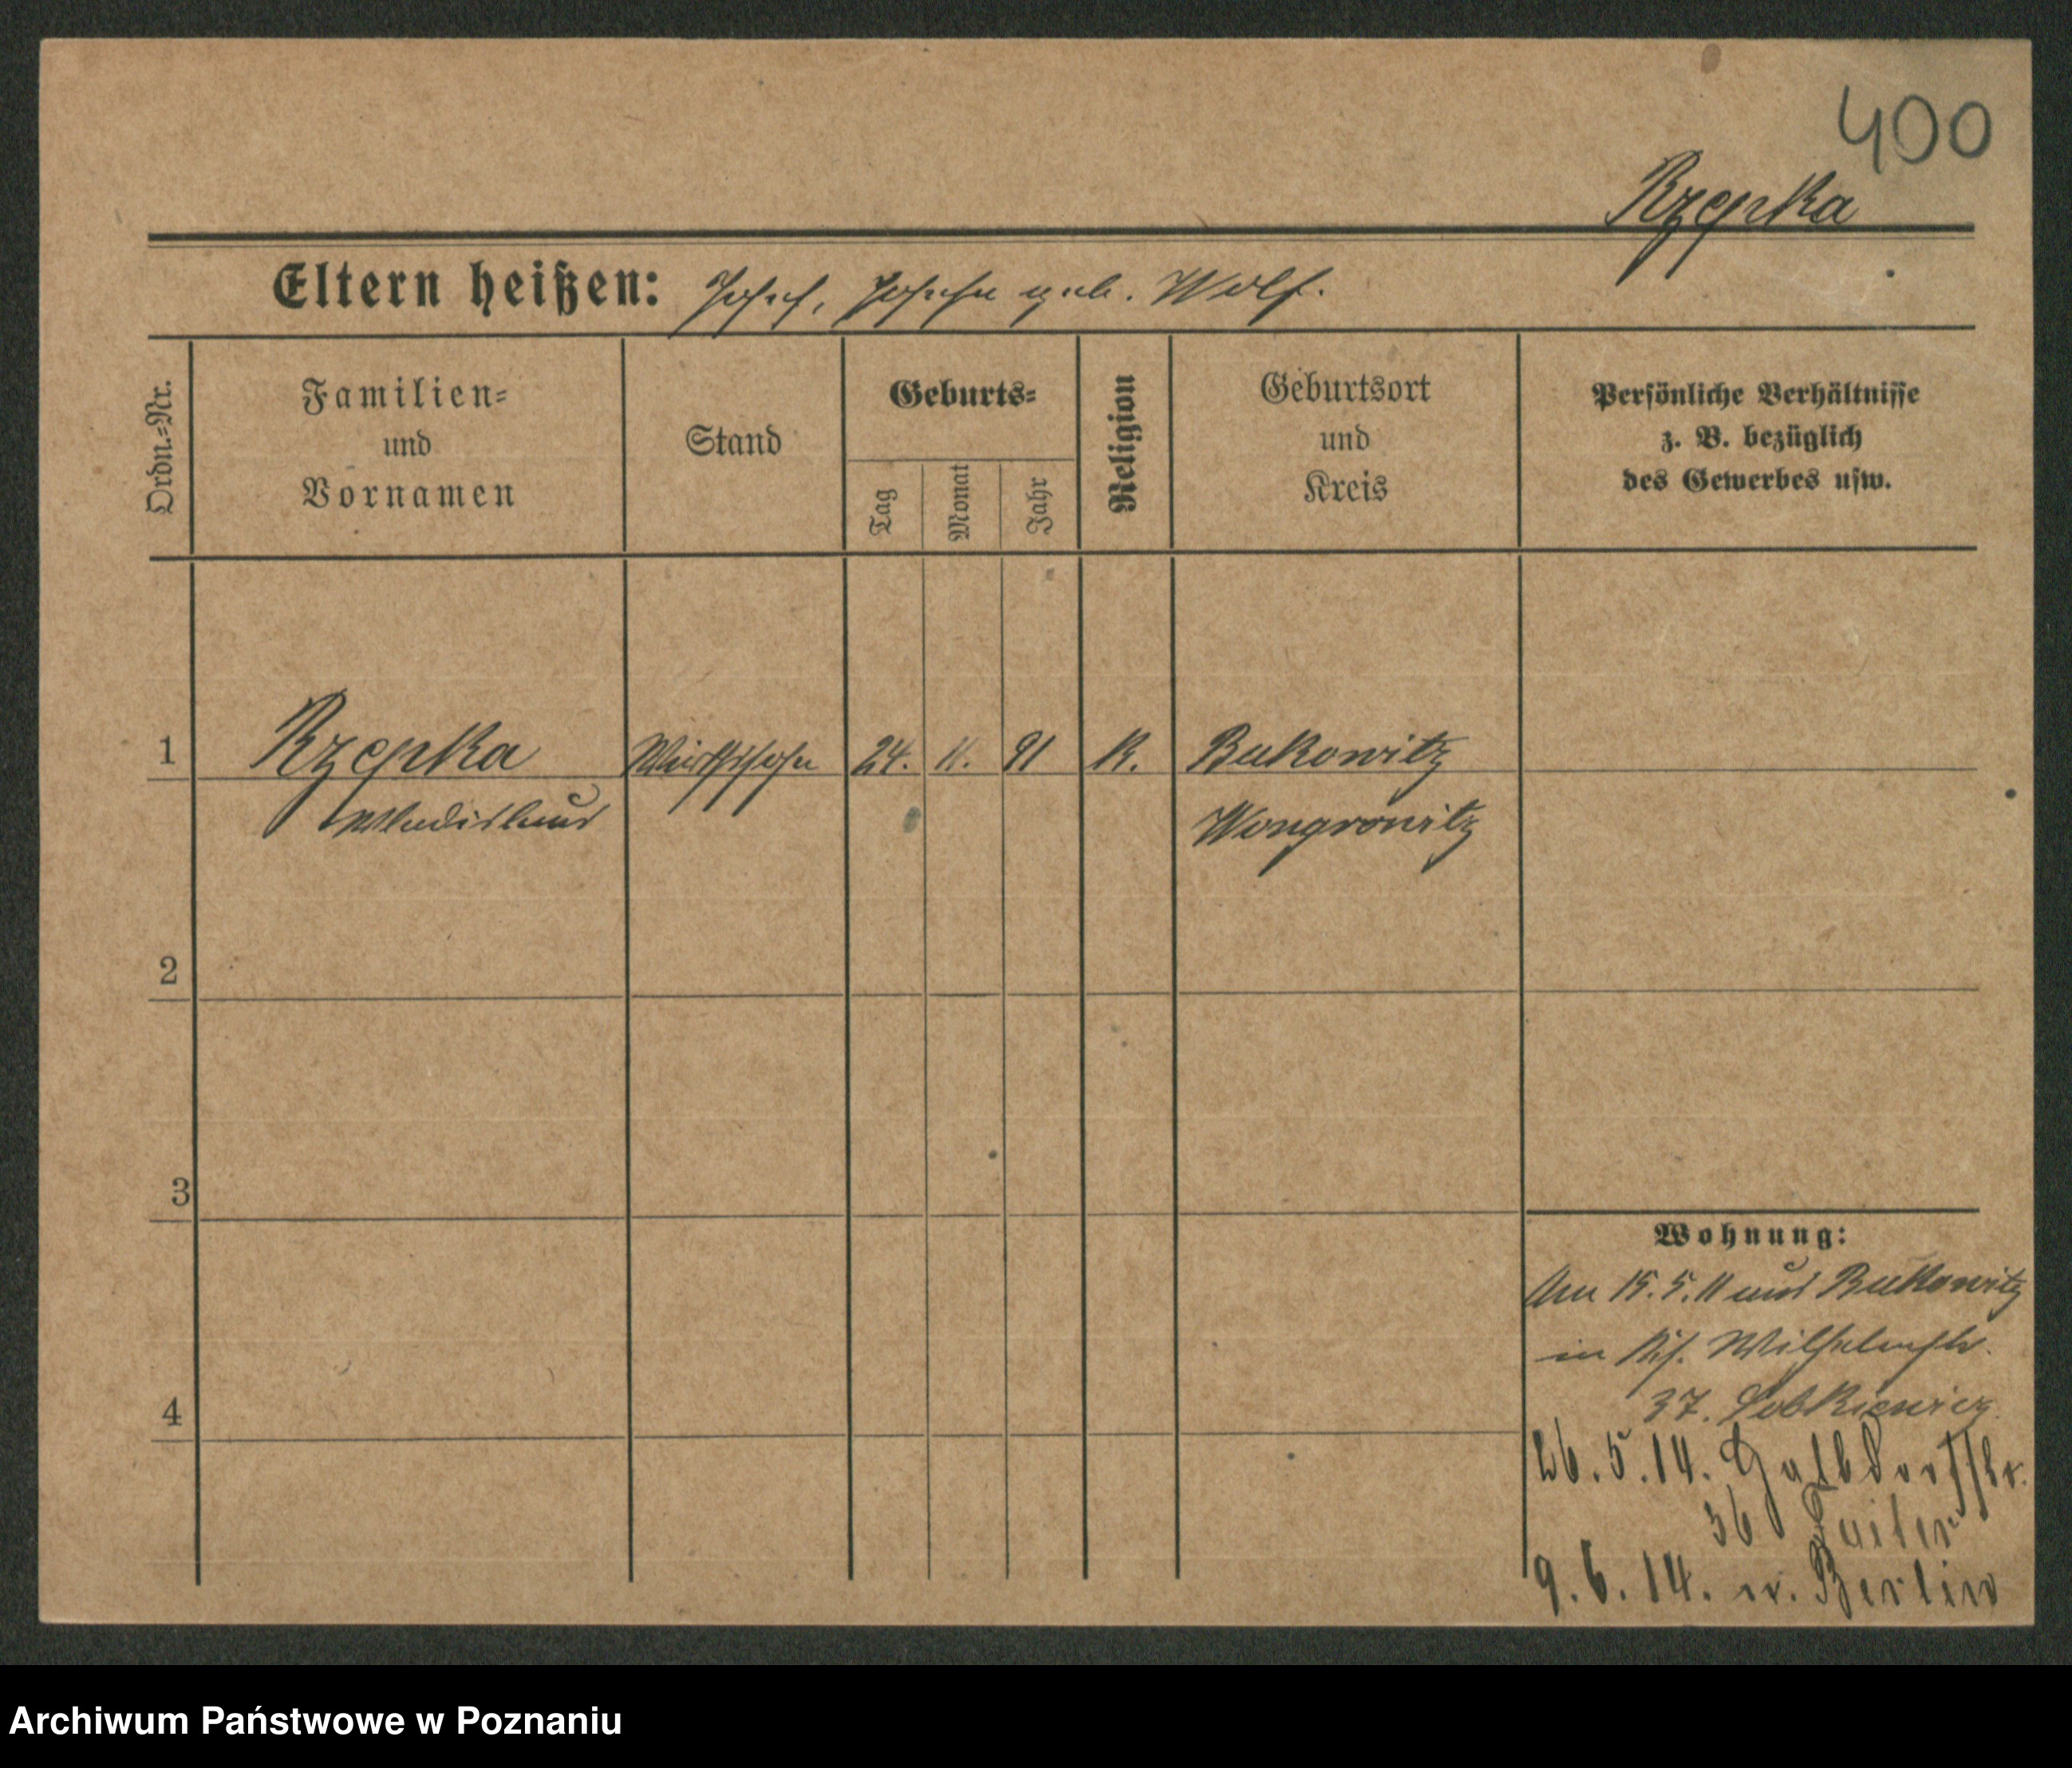 400
Rzepka
Eltern heißen: Josef, Josefa geb. Wolf.
Ordn.=Nr.
Familien=
und
Vornamen
Stand
Geburts=
Tag
Monat
Jahr
Religion
Geburtsort
und
Kreis
Persönliche Verhältnisse
z. B. bezüglich
des Gewerbes usw.
1 Rzepka Wirthssohn 24. 11. 91 K. Bukowitz
Wladislaus Wongrowitz
2
3
Wohnung:
Am 15.5.11 aus Bukowitz
in Wilhelmstr.
37.
4
26.5.14.
36
9.6.14. n. Berlin
Archiwum Państwowe w Poznaniu